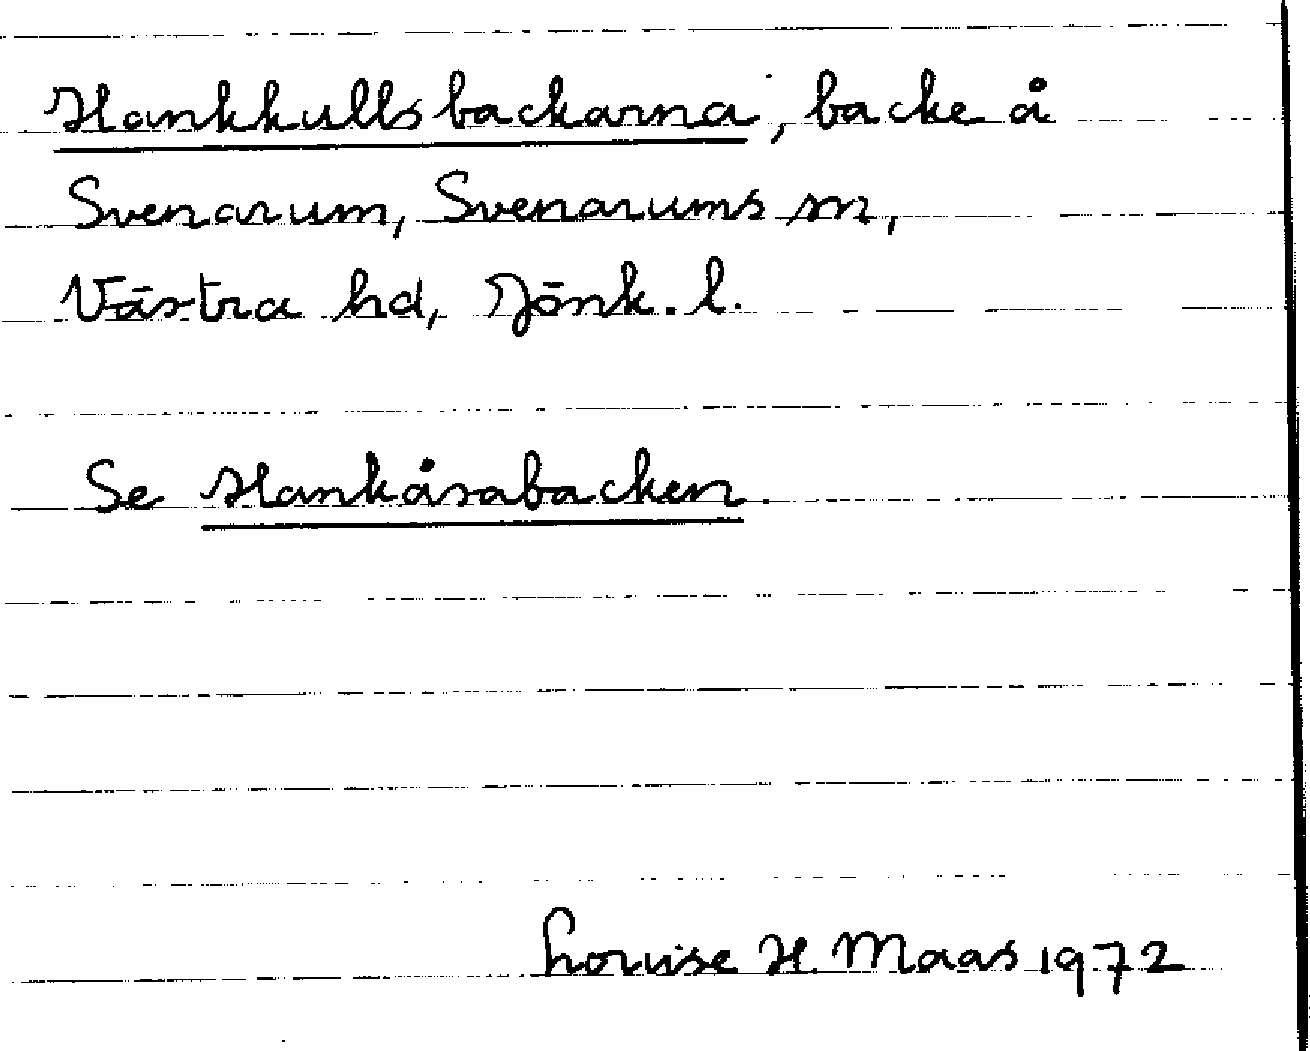 Hankkullsbackarna, backe å
Svenarum, Svenarums sn,
Västra hd, Jönk. l.
Se Hankåsabacken.
Louise H. Maas 1972